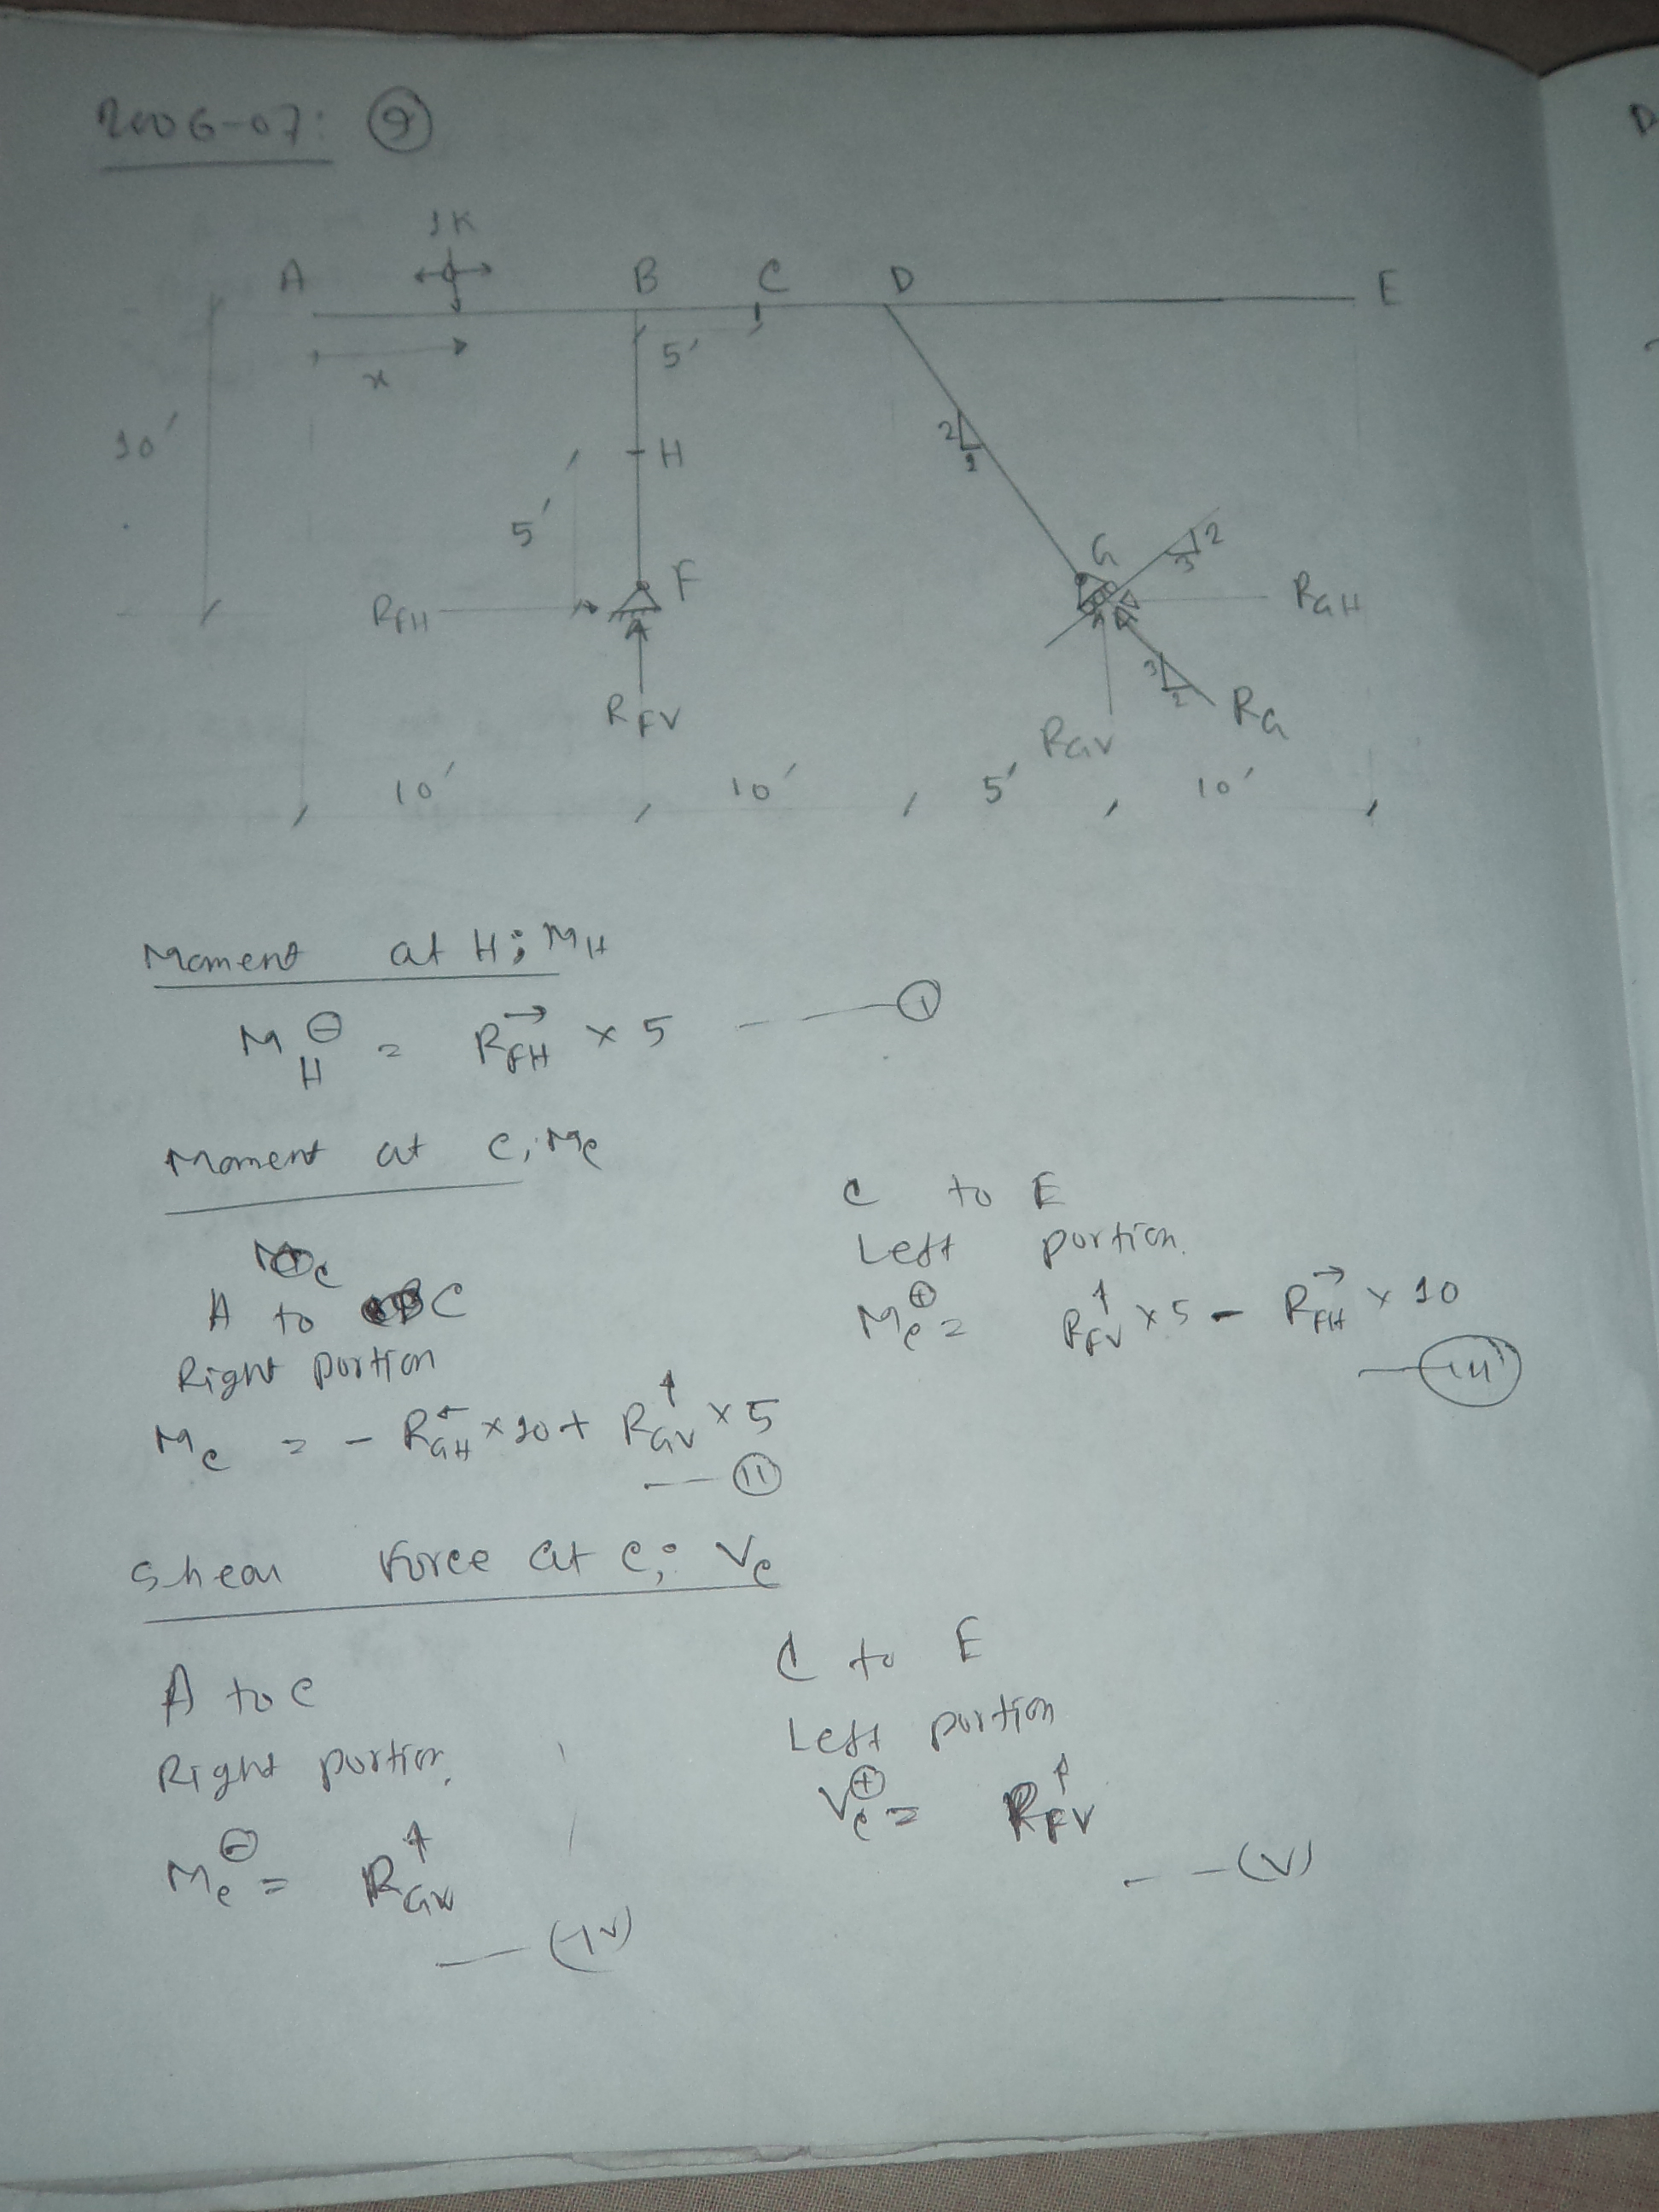 2006-07: 9
1K
A B C D E
x
5'
10'
H
2
1
5'
G
2
3
F
RFH
RGH
3
2
RFV
RG
RGV
10' 10' 5' 10'
Moment at H; MH
MH⊖ = RFH→ × 5 — (I)
Moment at C, Mc
A to C
Right portion
Mc = - RGH← × 10 + RGV↑ × 5
— (II)
C to E
Left portion.
Mc⊕ = RFV↑ × 5 - RFH→ × 10
— (III)
Shear Force at C; Vc
A to C
Right portion,
Mc⊖ = RGV↑
— (IV)
C to E
Left portion
Vc⊕ = RFV↑
— (V)